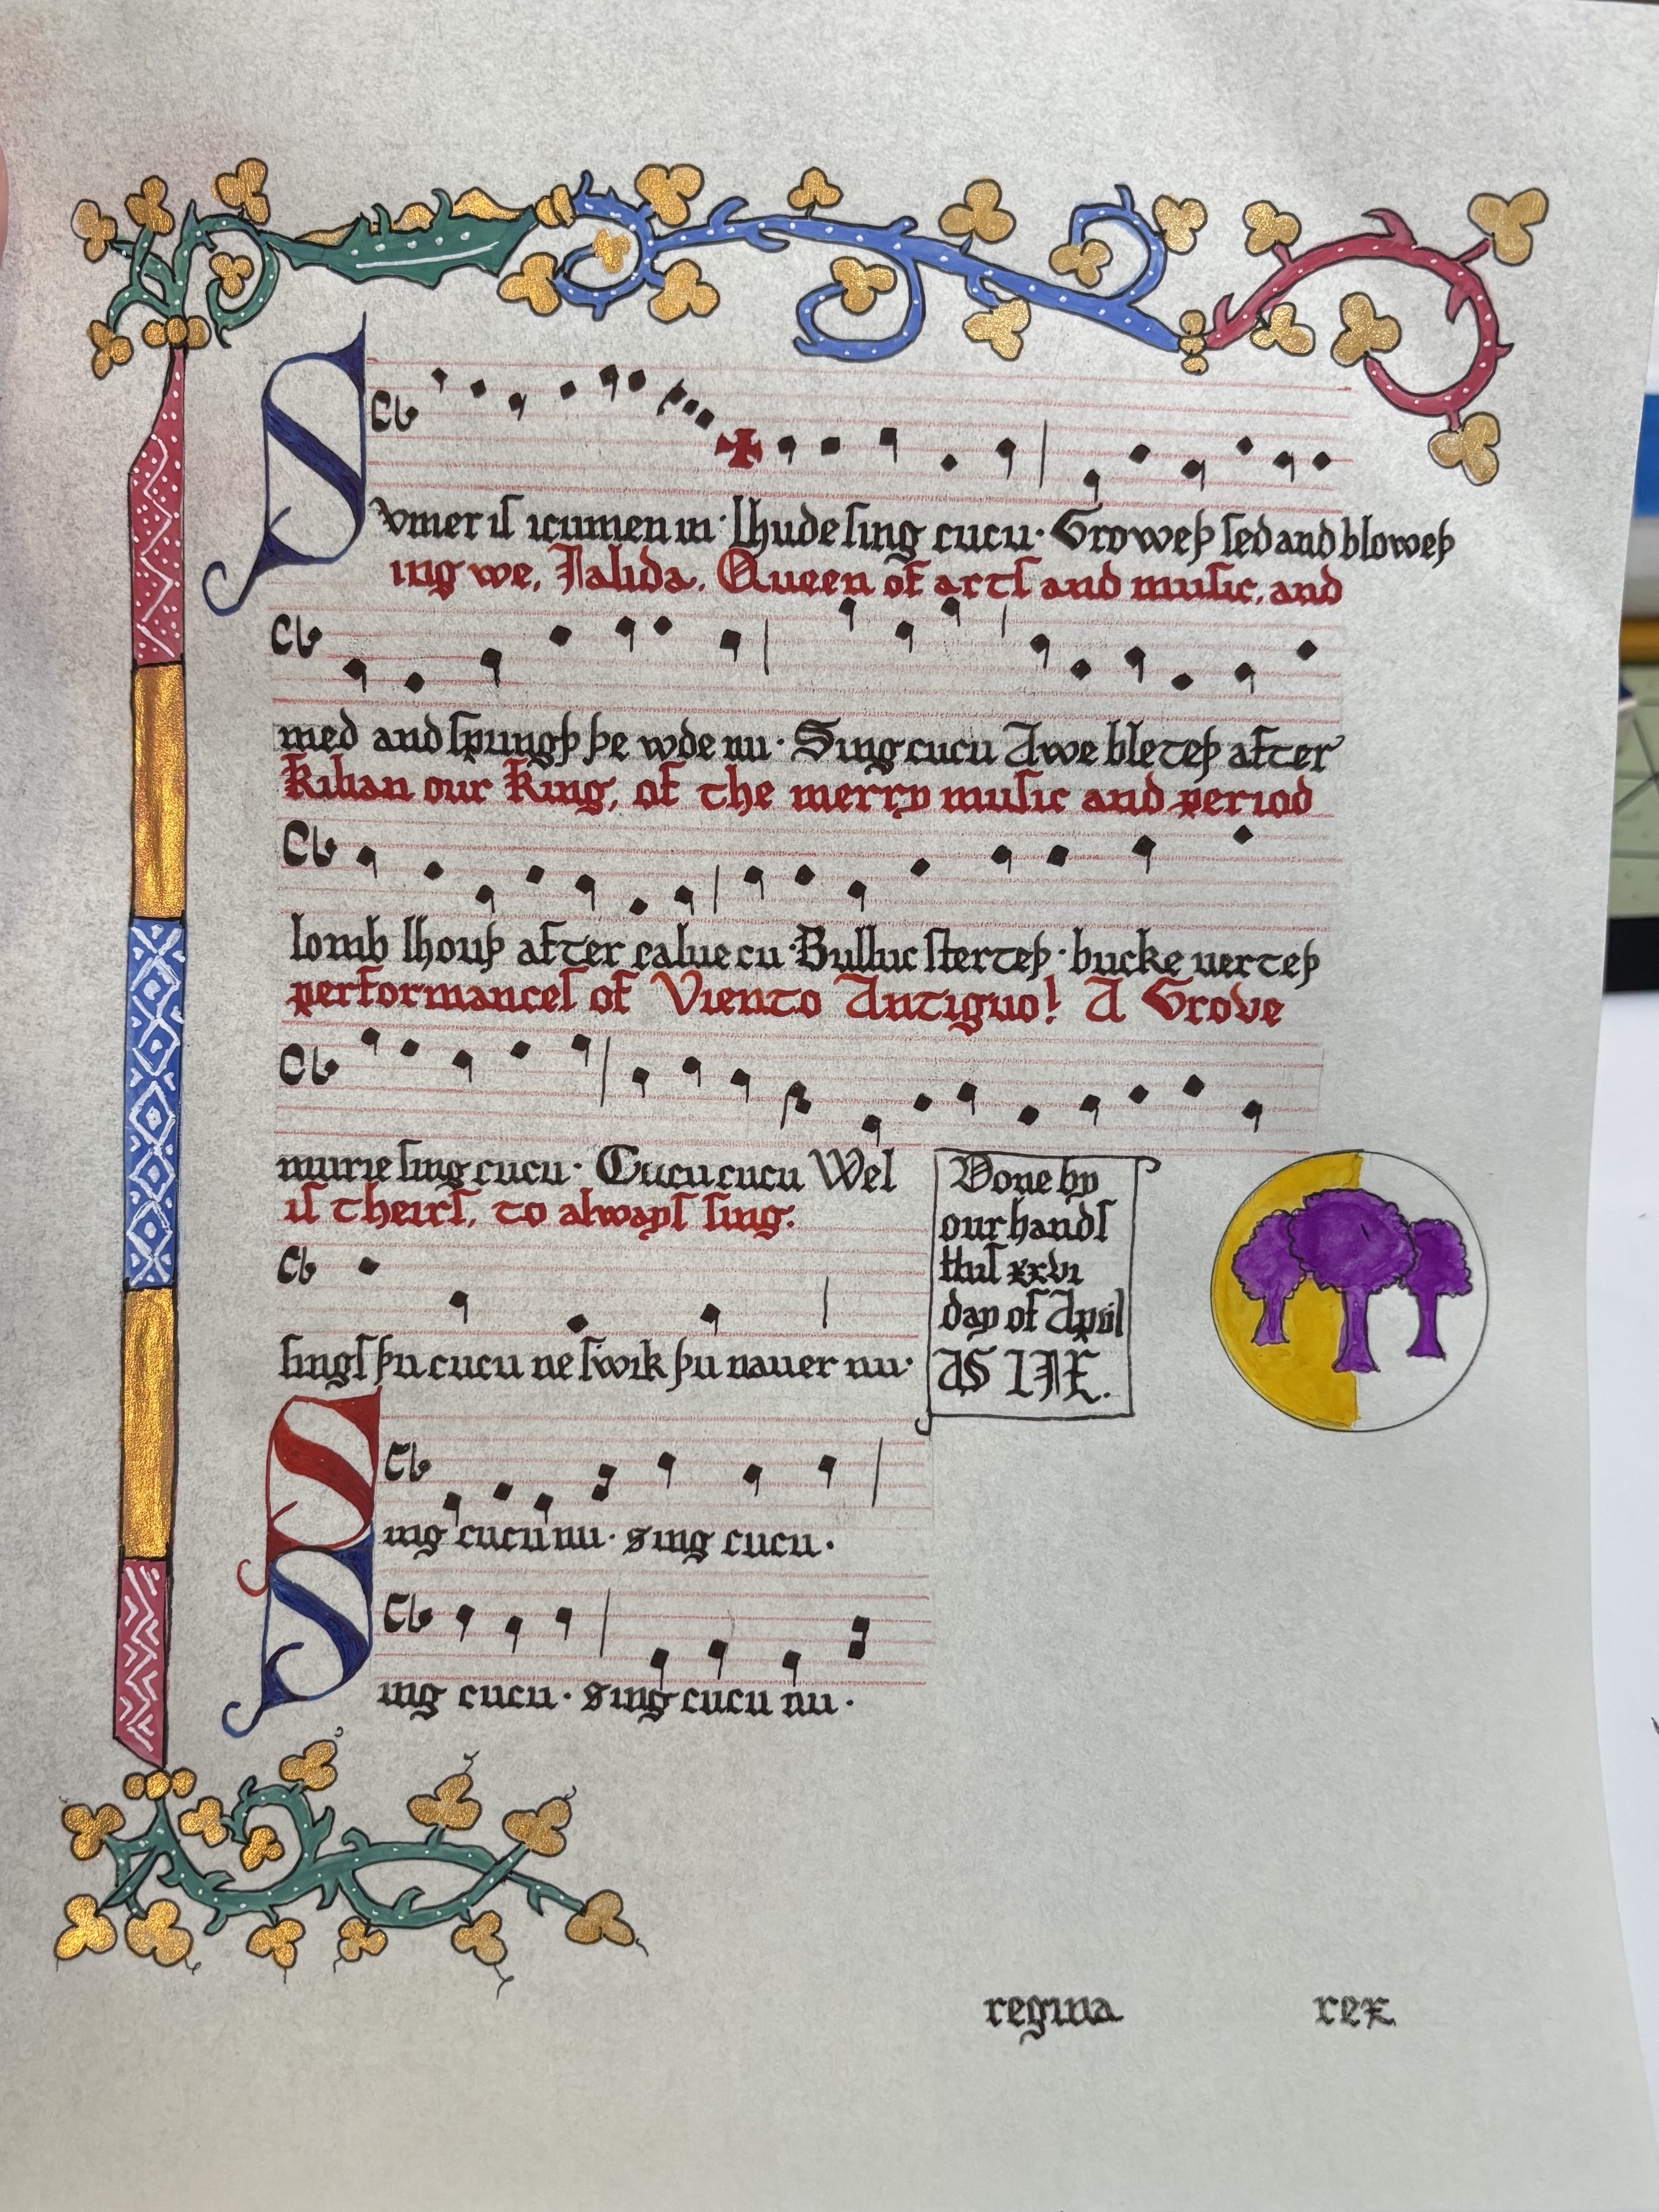 Svmer is icumen in · lhude sing cucu · Groweþ sed and bloweþ
ing we, Jalida, Queen of arts and music, and
med and springþ þe wde nu · Sing cucu Awe bleteþ after
Kilian our King, of the merry music and period
lomb lhouþ after calue cu · Bulluc sterteþ · bucke uerteþ
performances of Viento Antiguo! A Grove
murie sing cucu · Cucu cucu Wel
is theirs, to always sing.
sings þu cucu ne swik þu nauer nu ·
Done by
our hands
this xxvi
day of April
AS LIX.
Sing cucu nu · sing cucu ·
Sing cucu · sing cucu nu ·
regina rex